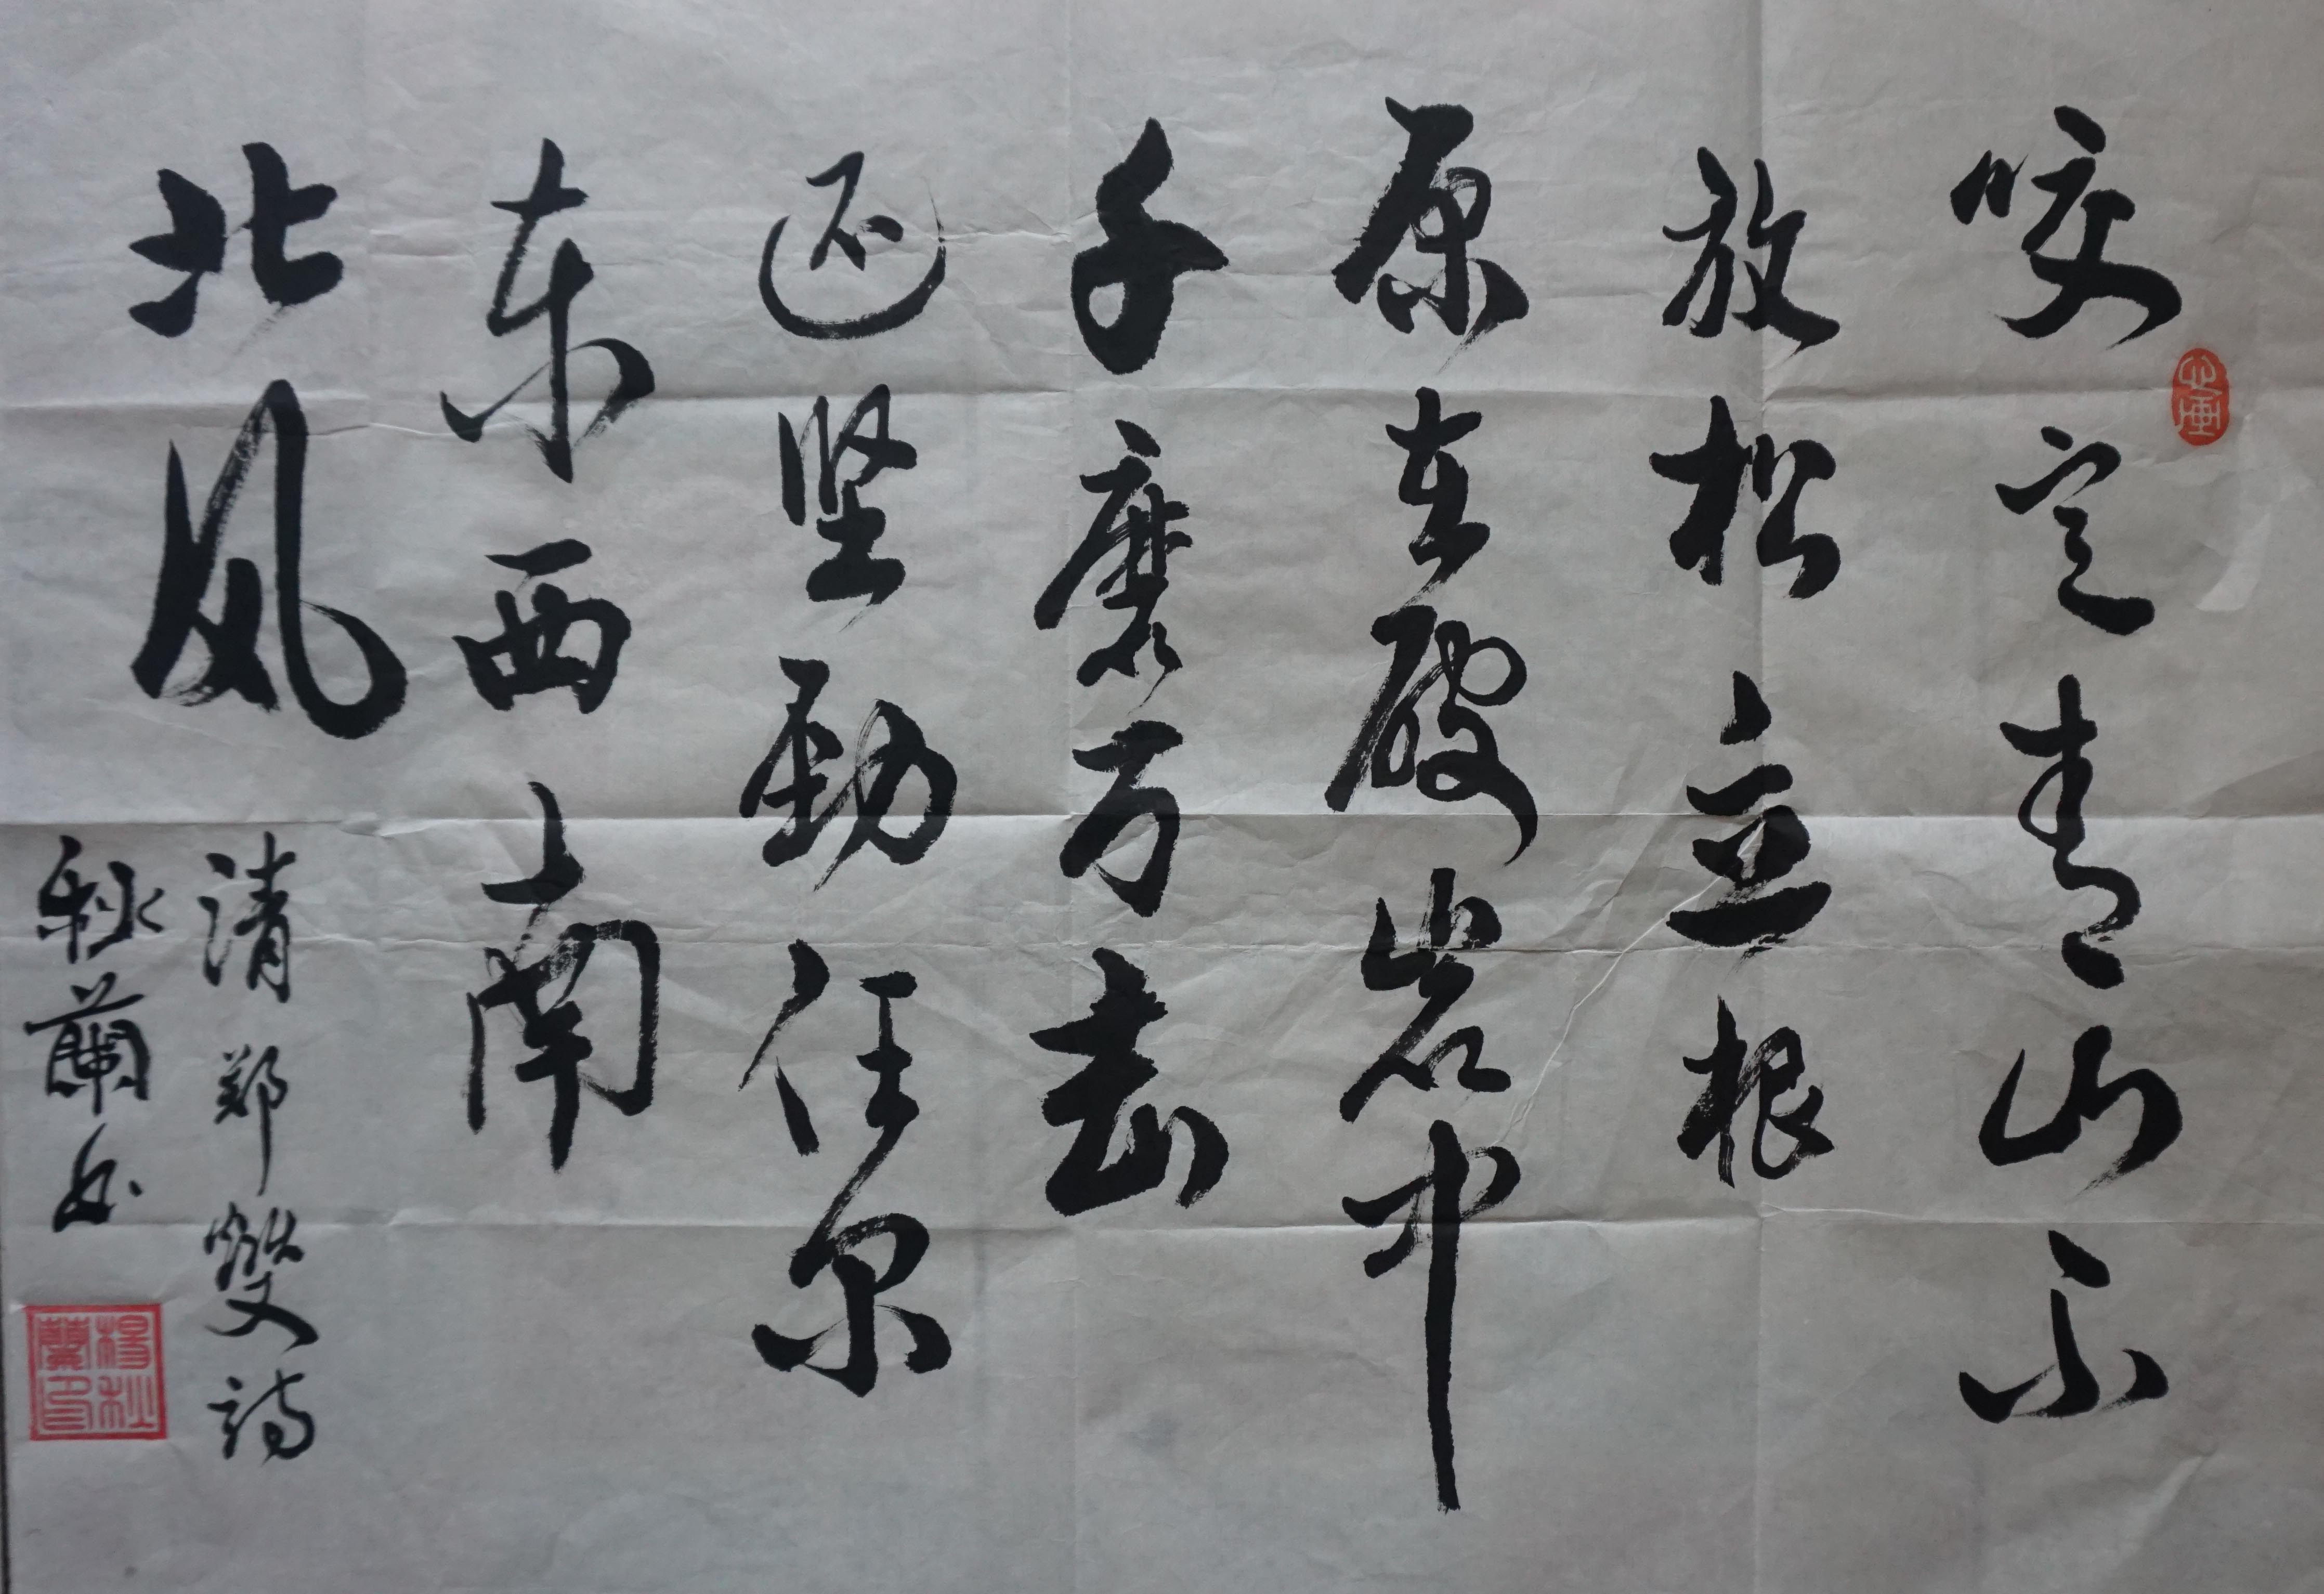 咬定青山不
放松立根
原在破岩中
千磨万击
还坚劲任尔
东西南
北风
清郑燮诗
秋蘭书
楊秋蘭印